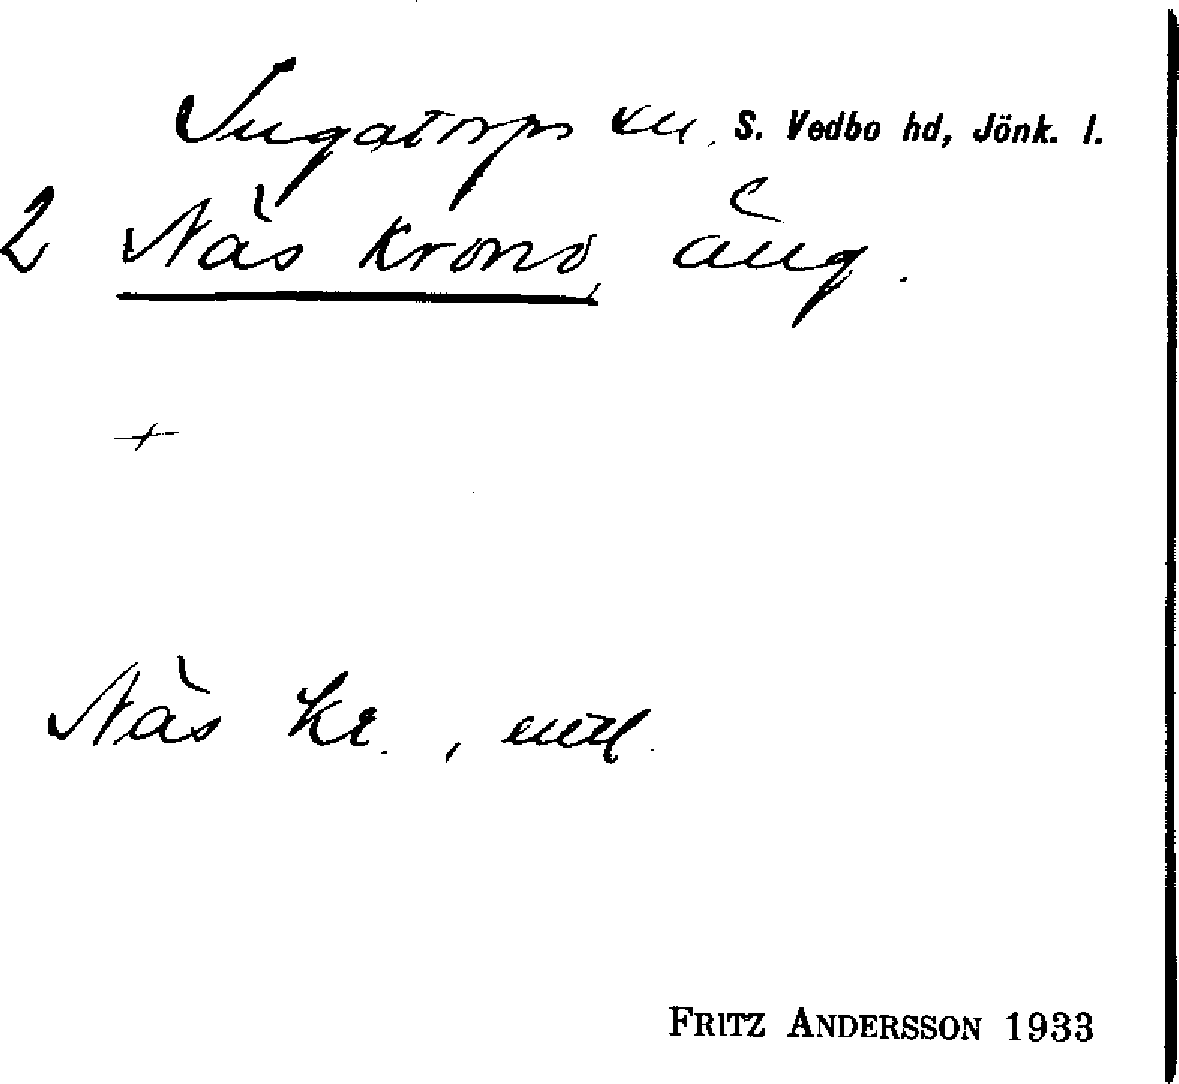 Ingatorps sn, S. Vedbo hd, Jönk. l.
2 Näs Krono äng.
+
Näs kr.,
FRITZ ANDERSSON 1933